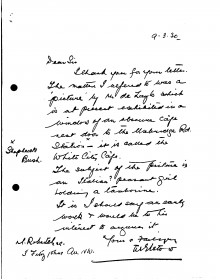 9.3.30.
Dear Sir
I thank you for your letter.
The matter I referred to was a
"picture" by Mr de Laszlo which
is at present exhibited in a
window of an obscure Cafe
next door to the Uxbridge Rd.
Station - it is called the
White City Cafe.
x
Shepherds
Bush
The subject of the picture is
an Italian? peasant girl
holding a tambourine.
It is I should say an early
work & would be to his
interest to acquire it.
Yours